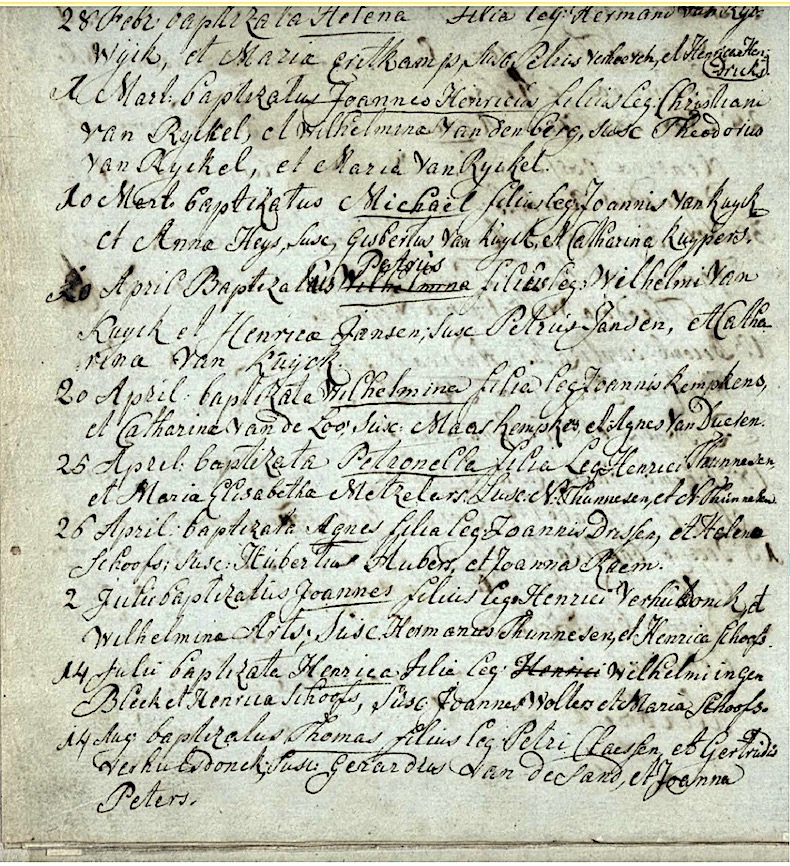 28 Febr baptizata Helena filia leg: Hermani van Ryt-
Wyck, et Maria gritkamp, susc Petrus Verhoeven, et Henrica Hen
dricks
7 Mart: baptizatus Joannes Henricus filius leg: Christiani
van Ryckel, et Wilhelmina Van den berg, susc Theodorus
van Ryckel, et Maria Van Ryckel.
10 Mart baptizatus Michaël filius leg. Joannis Van Kuyck
et Anna Heys, susc, Gisbertus Van Kuyck, et Catharina Kuypers.
Petrus
20 April Baptizatus Wilhelmina filius leg: Wilhelmi Van
Kuyck et Henrica Jansen, susc Petrus Jansen, et Catha
rina Van Kuyck.
20 April: baptizata Wilhelmina filia leg Joannis Kempkens,
et Catharina Van de Loo, susc: Maas Kempkes, et Agnes Van Duesen.
25 April: baptizata Petronella filia Leg: Henrici Thunnesen
et Maria Elisabetha Metzelers, Susc: N: Thunnesen, et N Thunnesen
26 April: baptizata Agnes filia leg: Joannis Drissen, et Helena
Schoofs; susc: Hubertus Hubers, et Joanna Raem.
2 Julii baptizatus Joannes filius leg: Henrici Verhuesdonck, et
Wilhelmina Arts, susc Hermanus Thunnesen, et Henrica Schoofs.
14 Julii baptizata Henrica filia leg Henrici Wilhelmi ingen
Bleek et Henrica Schoofs, susc Joannes Wolters et Maria Schoofs.
14 Aug: baptizatus Thomas filius leg Petri Claessen, et Gertrudis
Verhuesdonck, susc: Gerardus Van de Sand, et Joanna
Peters.